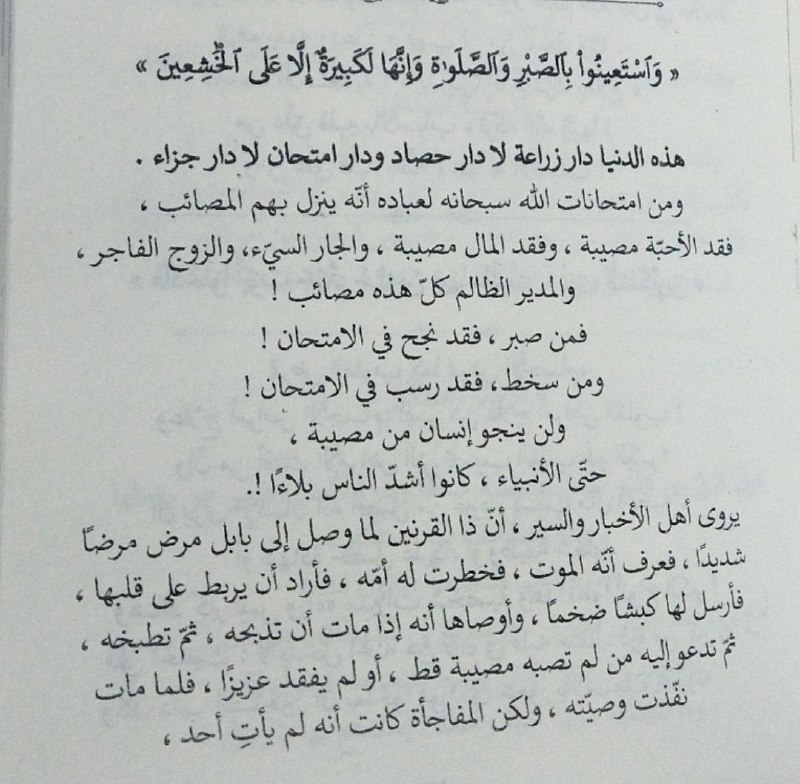 « وَٱسْتَعِينُوا۟ بِٱلصَّبْرِ وَٱلصَّلَوٰةِ وَإِنَّهَا لَكَبِيرَةٌ إِلَّا عَلَى ٱلْخَٰشِعِينَ »
هذه الدنيا دار زراعة لا دار حصاد ودار امتحان لا دار جزاء .
ومن امتحانات الله سبحانه لعباده أنّه ينزل بهم المصائب ،
فقد الأحبّة مصيبة ، وفقد المال مصيبة ، والجار السيّء، والزوج الفاجر ،
والمدير الظالم كلّ هذه مصائب !
فمن صبر ، فقد نجح في الامتحان !
ومن سخط، فقد رسب في الامتحان !
ولن ينجو إنسان من مصيبة ،
حتّى الأنبياء ، كانوا أشدّ الناس بلاءًا !.
يروى أهل الأخبار والسير ، أنّ ذا القرنين لما وصل إلى بابل مرض مرضاً
شديدًا ، فعرف أنّه الموت ، فخطرت له أمّه ، فأراد أن يربط على قلبها ،
فأرسل لها كبشًا ضخمًا ، وأوصاها أنه إذا مات أن تذبحه ، ثمّ تطبخه ،
ثمّ تدعو إليه من لم تصبه مصيبة قط ، أو لم يفقد عزيزًا ، فلما مات
نفّذت وصيّته ، ولكن المفاجأة كانت أنه لم يأتِ أحد ،